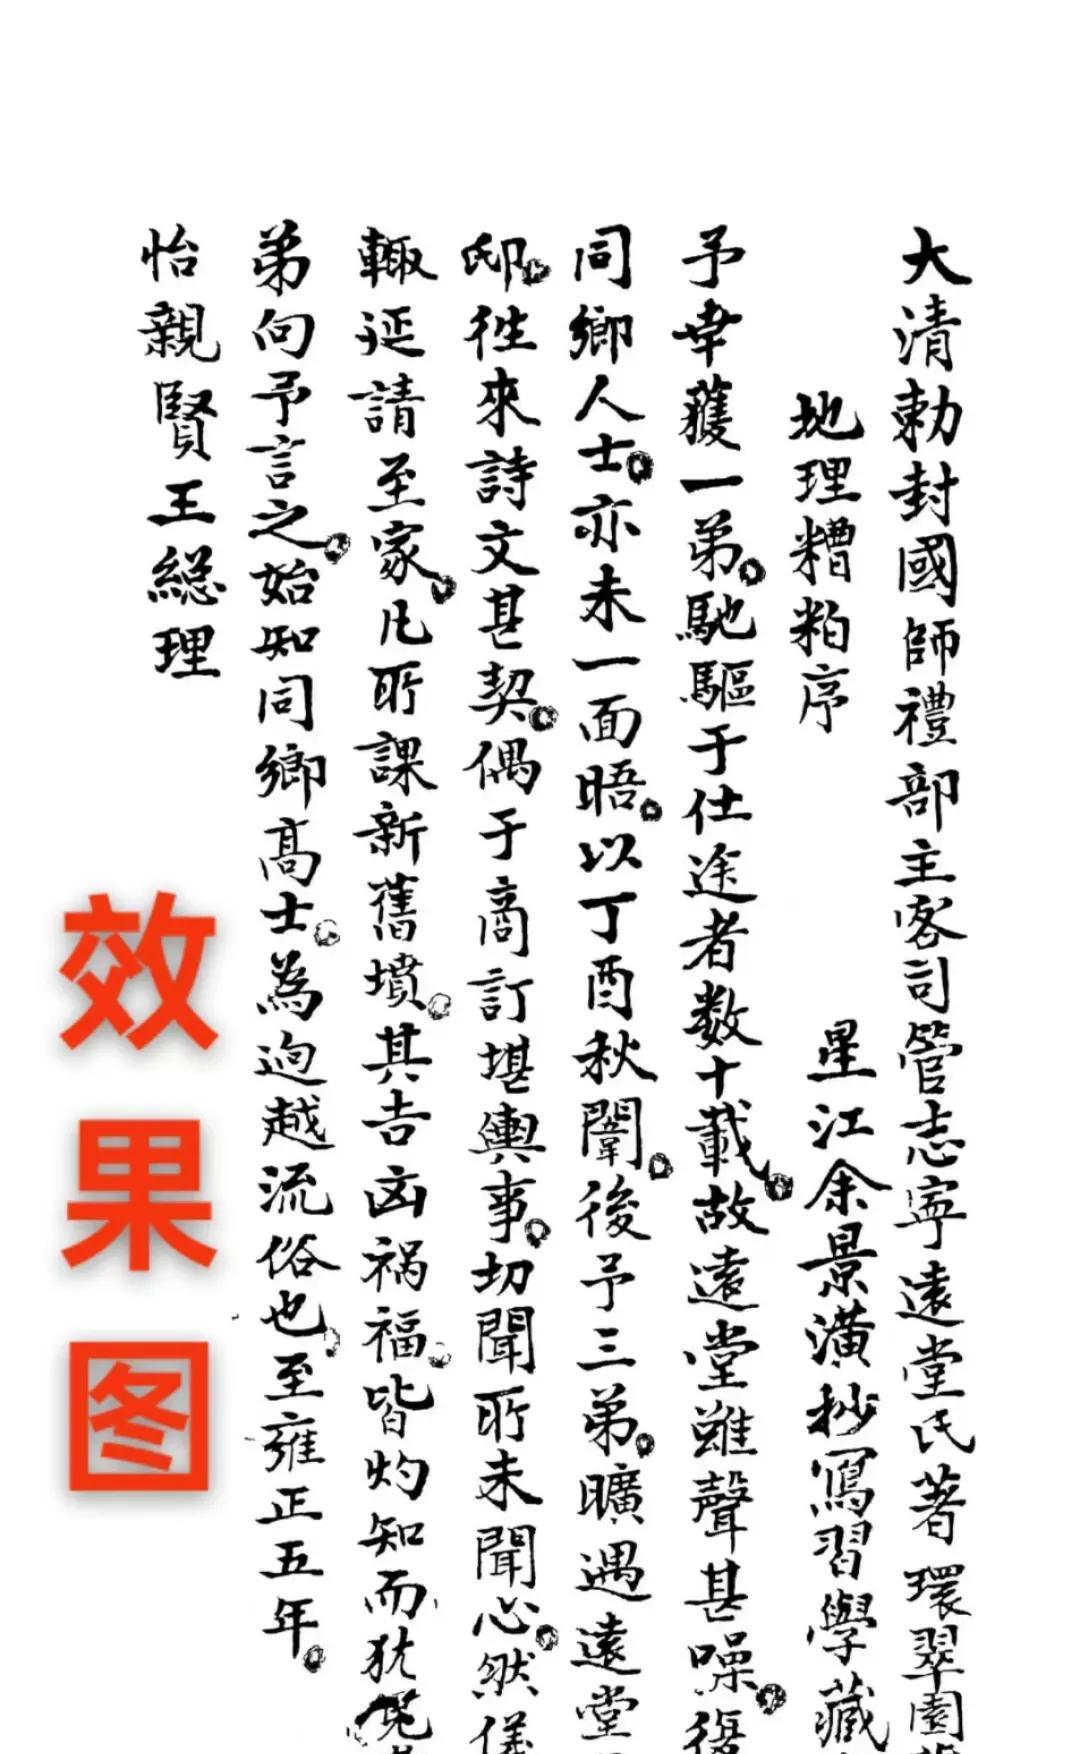 大清勅封國師禮部主客司管志寧遠堂氏著環翠園
地理糟粕序 星江余景潢抄寫習學藏
予幸獲一弟。馳驅于仕途者数十載。故遠堂雖聲甚噪。復
同鄉人士。亦未一面晤。以丁酉秋闈。後予三弟。曠遇遠堂
邸。徃來詩文甚契。偶于商訂堪輿事。切聞所未聞心。然儀
輙延請至家。凡所課新舊墳。其吉凶祸福。皆灼知而犹
弟向予言之。始知同鄉高士。為逈越流俗也。至雍正五年。
怡親賢王総理
效果图